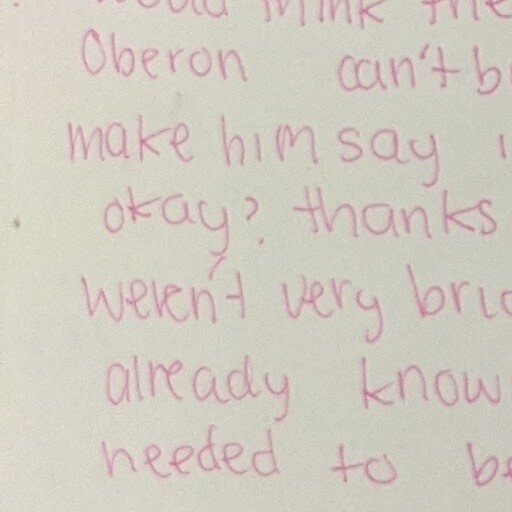 think the
Oberon can't b
make him say
okay? thanks
weren't very bri
already know
needed to be